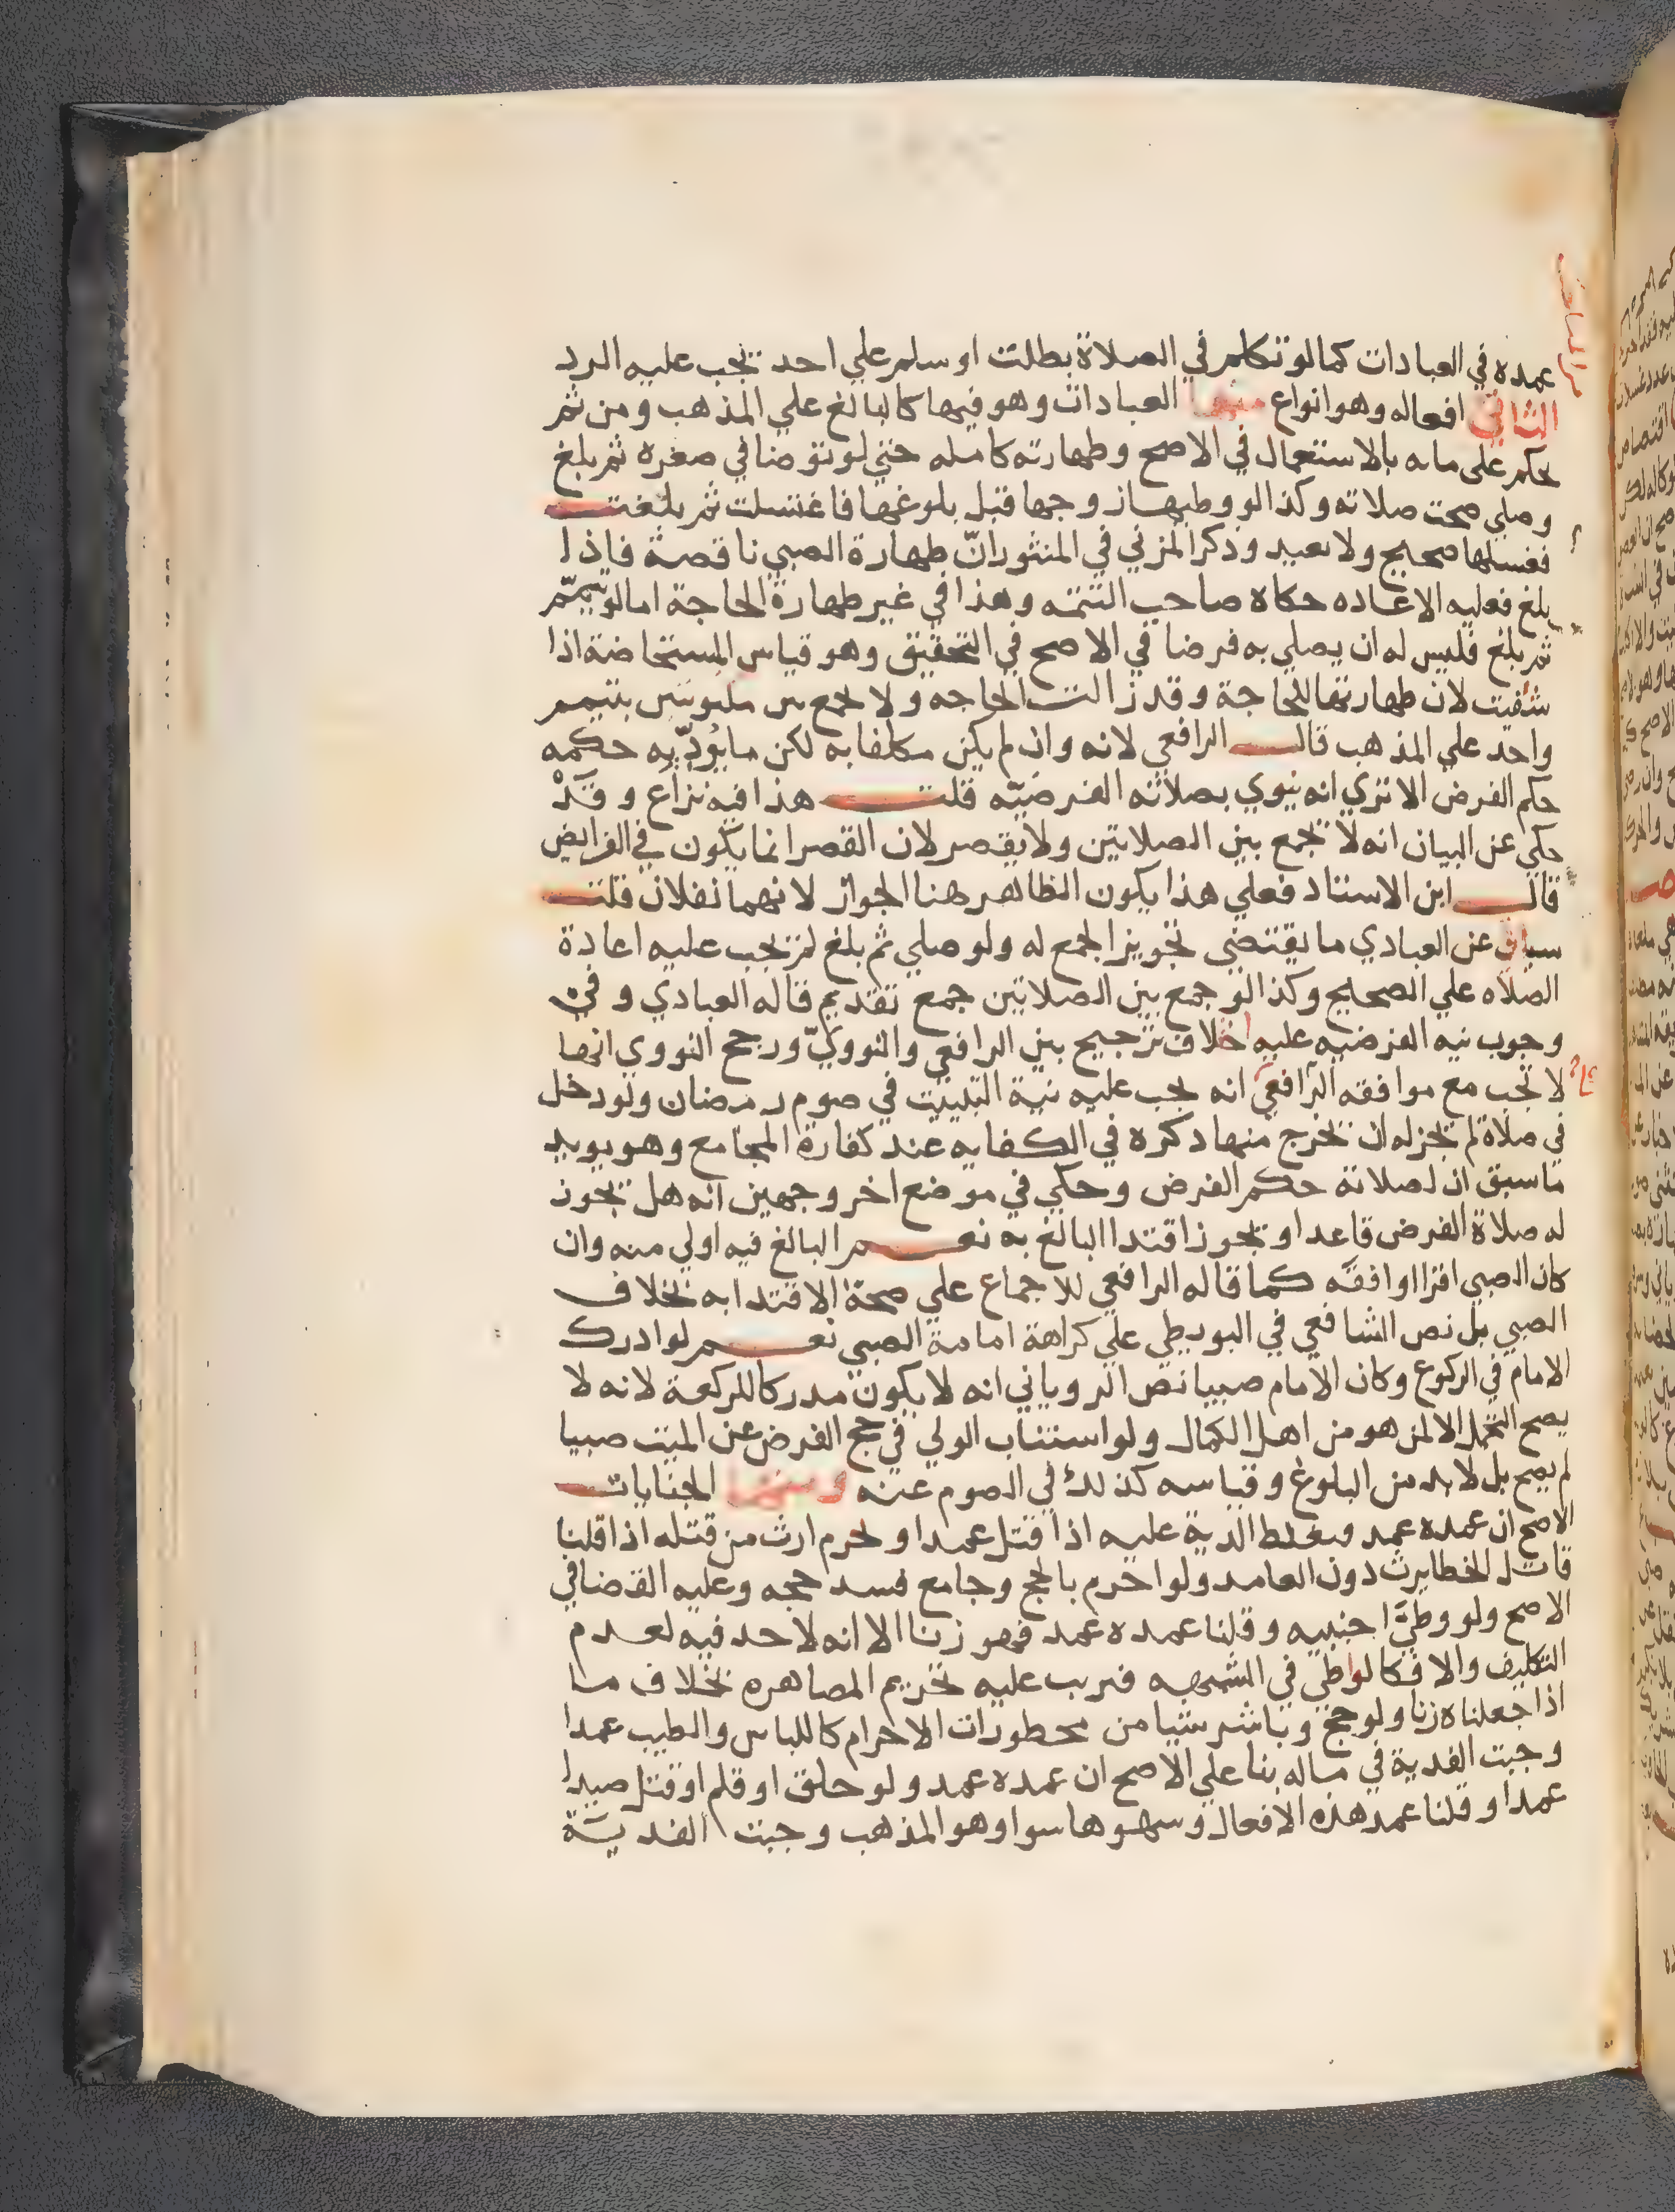 عمده في العبادات كما لو تكلم في الصلاة بطلت او سلم علي احد تجب عليه الرد
الثاني افعاله وهو انواع منها العبادات وهو فيها كالبالغ علي المذهب ومن ثم
يحكم على مايه بالاستعمال في الاصح وطهارته كامله حتي لو توضا في صغره ثم بلغ
وصلي صحت صلاته وكذا لو وطيها زوجها قبل بلوغها فاغتسلت ثم بلغت
فغسلها صحيح ولا تعيد وذكر المزني في المنثور انّ طهارة الصبي ناقصة فاذا
بلغ فعليه الاعاده حكاه صاحب التتمه وهذا في غير طهارة الحاجة اما لو تيمّم
ثم بلغ فليس له ان يصلي به فرضا في الاصح في التحقيق وهو قياس المستحاضة اذا
شفيت لان طهارتها للحاجة وقد زالت الحاجه ولا يجمع بين مكتوبتين بتيمم
واحد علي المذهب قال الرافعي لانه وان لم يكن مكلفا به لكن ما يؤدّيه حكمه
حكم الفرض الا تري انه ينوي بصلاته الفرضيّه قلت هذا فيه نزاع وقَدْ
حكي عن البيان انه لا يجمع بين الصلاتين ولا يقصر لان القصر انما يكون في الفرايض
قال ابن الاستاد فعلي هذا يكون الظاهر هنا الجواز لانهما نفلان قلت
سياتي عن العبادي ما يقتضي تجويز الجمع له ولو صلي ثم بلغ لم تجب عليه اعادة
الصلاه علي الصحيح وكذا لو جمع بين الصلاتين جمع تقديم قاله العبادي وفي
وجوب نيه الفرضيه عليه اختلاف ترجيح بين الرافعي والنوويّ ورجح النووي انها
لا تجب مع موافقه الرافعي انه يجب عليه نية التبييت في صوم رمضان ولو دخل
في صلاة لم يجز له ان يخرج منها ذكره في الكفايه عند كفارة المجامع وهو يويد
ما سبق ان لصلاته حكم الفرض وحكي في موضع اخر وجهين انه هل تجوز
له صلاة الفرض قاعدا وتجوز اقتدا البالغ به نعم البالغ فيه اولي منه وان
كان الصبي اقرا او افقه كما قاله الرافعي للاجماع علي صحة الاقتدا به بخلاف
الصبي بل نص الشافعي في البويطي علي كراهة امامة الصبي نعم لو ادرك
الامام في الركوع وكان الامام صبيا نص الروياني انه لا يكون مدركا للركعة لانه لا
يصح التحمل الا لمن هو من اهل الكمال ولو استناب الولي في حج الفرض عن الميت صبيا
لم يصح بل لا بد من البلوغ وقياسه كذلك في الصوم عنه ومنها الجنايات
الاصح ان عمده عمد فتغلظ الدية عليه اذا قتل عمدا ويحرم ارث من قتله اذا قلنا
قاتل الخطا يرث دون العامد ولو احرم بالحج وجامع فسد حجه وعليه القضا في
الاصح ولو وطيَ اجنبيه وقلنا عمده عمد فهو زنا الا انه لا حد فيه لعدم
التكليف والا فكالواطي في الشبهه فترتب عليه تحريم المصاهره بخلاف ما
اذا جعلناه زنا ولو حج وباشر شيا من محظورات الاحرام كاللباس والطيب عمدا
وجبت الفدية في ماله بنا علي الاصح ان عمده عمد ولو حلق او قلم او قتل صيدا
عمدا وقلنا عمد هذه الافعال وسهوها سوا وهو المذهب وجبت الفديَة